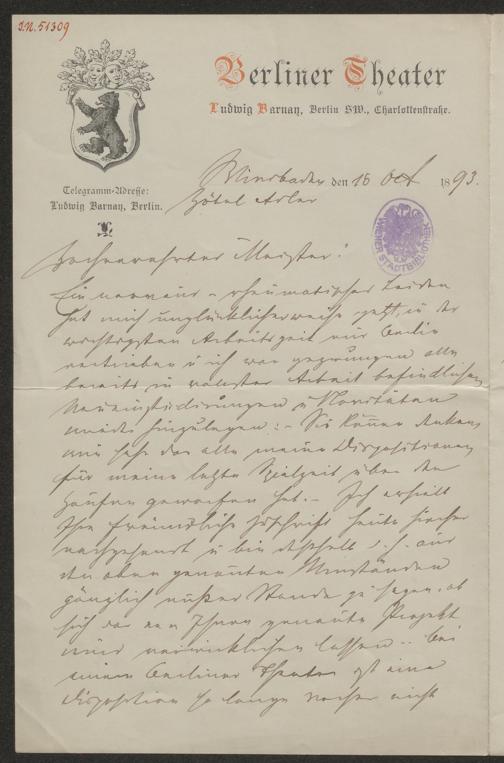 I.N. 51309
Berliner Theater
Ludwig Barnay, Berlin SW., Charlottenstraße.
Telegramm-Adresse:
Ludwig Barnay, Berlin.
Wiesbaden den 18 Oct 1893.
Hôtel Adler
WIENER STADTBIBLIOTHEK
Hochverehrter Meister!
Ein nervös-rheumatisches Leiden
hat mich unglücklicherweise jetzt, in der
wichtigsten Arbeitszeit aus Berlin
vertrieben u ich war gezwungen alle
bereits in vollster Arbeit befindlichen
Neueinstudirungen u Novitäten
wieder hinzulegen: – Sie können denken
wie sehr das alle meine Dispositionen
für meine letzte Spielzeit über den
Haufen geworfen hat. – Ich erhielt
Ihre freundliche Zuschrift heute hierher
nachgesandt u bin deshalb u. s. aus
den oben genannten Umständen
gänzlich außer Stande zu sagen, ob
sich das von Ihnen genannte Projekt
wird verwirklichen lassen. Bei
meinem Berliner Theater ist eine
Disposition so lange vorher nicht